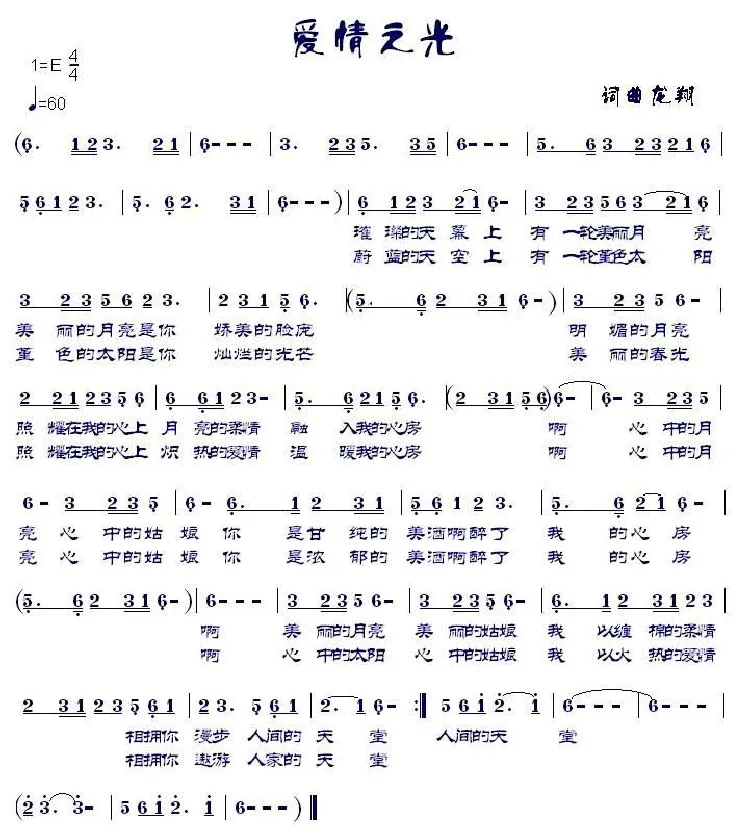 爱情之光
1=E 4/4
♩=60
词曲龙翔
(6. 123. 21 | 6--- | 3. 235. 35 | 6--- | 5. 63 23216 |
56123. | 5. 62. 31 | 6---) | 6 123 216- | 3 23563216 |
璀璨的天幕上有一轮美丽月亮
蔚蓝的天空上有一轮堇色太阳
3 235623. | 2315. | (5. 62 316-) | 3 2356- |
美丽的月亮是你娇美的脸庞 明媚的月亮
堇色的太阳是你灿烂的光芒 美丽的春光
2 212356 | 6 6123- | 5. 62156. | (23156) 6- | 6- 3 235 |
照耀在我的心上月亮的柔情融入我的心房 啊心中的月
照耀在我的心上炽热的爱情温暖我的心房 啊心中的月
6- 3 235 | 6- 6. | 12 31 | 56123. | 5. 6216- |
亮心中的姑娘你是甘纯的美酒啊醉了我的心房
亮心中的姑娘你是浓郁的美酒啊醉了我的心房
(5. 62 316-) | 6--- | 3 2356- | 3 2356- | 6. 123123 |
啊美丽的月亮美丽的姑娘我以缠棉的柔情
啊心中的太阳心中的姑娘我以火热的爱情
2 3123561 | 23. 561 | 2. 16- :‖ 561 2. 1 | 6--- | 6--- |
相拥你漫步人间的天堂 人间的天堂
相拥你遨游人家的天堂
(23. 3- | 561 2. 1 | 6---) ‖